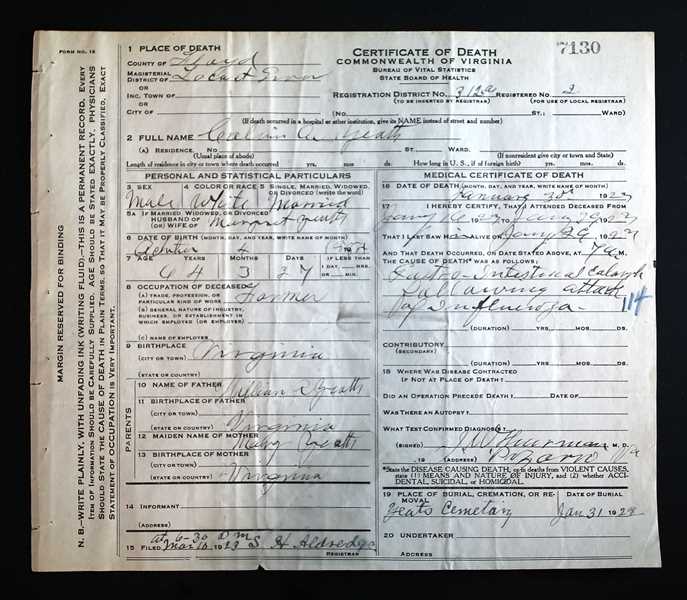 FORM NO. 12
MARGIN RESERVED FOR BINDING
N. B.—WRITE PLAINLY, WITH UNFADING INK (WRITING FLUID).—THIS IS A PERMANENT RECORD. EVERY
ITEM OF INFORMATION SHOULD BE CAREFULLY SUPPLIED. AGE SHOULD BE STATED EXACTLY, PHYSICIANS
SHOULD STATE THE CAUSE OF DEATH IN PLAIN TERMS, SO THAT IT MAY BE PROPERLY CLASSIFIED. EXACT
STATEMENT OF OCCUPATION IS VERY IMPORTANT.
1 PLACE OF DEATH
COUNTY OF Floyd
MAGISTERIAL
DISTRICT OF Locust Grove
OR
INC. TOWN OF
OR
CITY OF
CERTIFICATE OF DEATH
COMMONWEALTH OF VIRGINIA
BUREAU OF VITAL STATISTICS
STATE BOARD OF HEALTH
7130
REGISTRATION DISTRICT NO. 312a REGISTERED NO. 2
(TO BE INSERTED BY REGISTRAR) (FOR USE OF LOCAL REGISTRAR)
(NO. ST.: WARD)
(If death occurred in a hospital or other institution, give its NAME instead of street and number)
2 FULL NAME Calvin A. Yeatts
(A) RESIDENCE. NO. ST. WARD
(Usual place of abode) (If nonresident give city or town and State)
Length of residence in city or town where death occurred yrs. mos. ds. How long in U. S., if of foreign birth? yrs. mos. ds.
PERSONAL AND STATISTICAL PARTICULARS
3 SEX 4 COLOR OR RACE 5 SINGLE, MARRIED, WIDOWED, OR DIVORCED (write the word)
Male White Married
5A IF MARRIED, WIDOWED, OR DIVORCED
HUSBAND OF
(OR) WIFE OF Margret Yeatts
6 DATE OF BIRTH (MONTH, DAY, AND YEAR, WRITE NAME OF MONTH)
4
7 AGE YEARS MONTHS DAYS IF LESS THAN
1 DAY, HRS.
OR MIN.
64 3 27
8 OCCUPATION OF DECEASED
(A) TRADE, PROFESSION, OR
PARTICULAR KIND OF WORK Farmer
(B) GENERAL NATURE OF INDUSTRY,
BUSINESS, OR ESTABLISHMENT IN
WHICH EMPLOYED (OR EMPLOYER)
(C) NAME OF EMPLOYER
9 BIRTHPLACE
(CITY OR TOWN) Virginia
(STATE OR COUNTRY)
PARENTS
10 NAME OF FATHER William Yeatts
11 BIRTHPLACE OF FATHER
(CITY OR TOWN)
(STATE OR COUNTRY) Virginia
12 MAIDEN NAME OF MOTHER Mary Yeatts
13 BIRTHPLACE OF MOTHER
(CITY OR TOWN)
(STATE OR COUNTRY) Virginia
14 INFORMANT
(ADDRESS)
15 FILED Mar 10 1923 S. H. Aldredge
REGISTRAR
MEDICAL CERTIFICATE OF DEATH
16 DATE OF DEATH (MONTH, DAY, AND YEAR, WRITE NAME OF MONTH)
January 30th 1923
17 I HEREBY CERTIFY, THAT I ATTENDED DECEASED FROM
THAT I LAST SAW H ALIVE ON Jany 29 1923
AND THAT DEATH OCCURRED, ON DATE STATED ABOVE, AT 7 a M.
THE CAUSE OF DEATH* WAS AS FOLLOWS:
Gastro-Intestinal Catarrh
following attack
of Influenza 114
(DURATION) YRS. MOS. DS.
CONTRIBUTORY
(SECONDARY)
(DURATION) YRS. MOS. DS.
18 WHERE WAS DISEASE CONTRACTED
IF NOT AT PLACE OF DEATH?
DID AN OPERATION PRECEDE DEATH? DATE OF
WAS THERE AN AUTOPSY?
WHAT TEST CONFIRMED DIAGNOSIS?
(SIGNED) M. D.
, 19 (ADDRESS) Va
*State the DISEASE CAUSING DEATH, or in deaths from VIOLENT CAUSES,
state (1) MEANS AND NATURE OF INJURY, and (2) whether ACCI-
DENTAL, SUICIDAL, or HOMICIDAL.
19 PLACE OF BURIAL, CREMATION, OR RE- DATE OF BURIAL
MOVAL
Yeats Cemetery Jan 31 1923
20 UNDERTAKER
(ADDRESS)